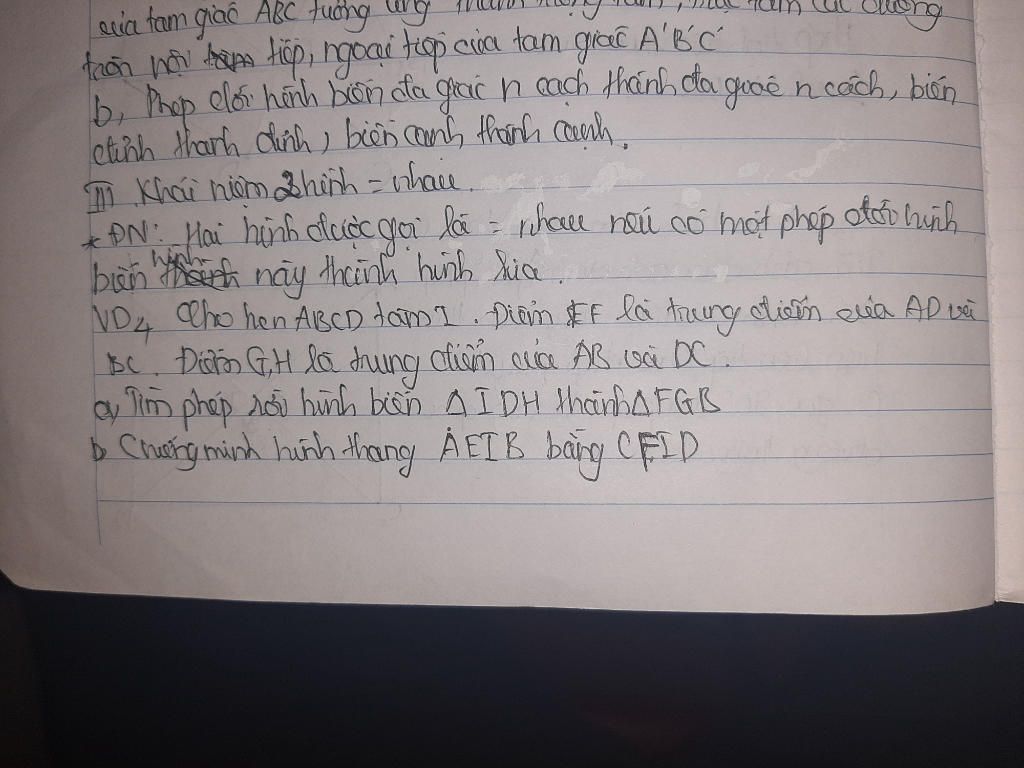 của tam giác ABC tương ứng thành trọng tâm, trực tâm các đường
tròn nội tiếp, ngoại tiếp của tam giác A'B'C'
b, Phép dời hình biến đa giác n cạch thành đa giác n cách, biến
đỉnh thanh đỉnh, biến cạnh thành cạnh.
III. Khái niệm 2 hình = nhau.
* ĐN: Hai hình được gọi là = nhau nếu có một phép dời hình
biến hình này thành hình kia.
VD4 Cho hcn ABCD tâm I. Điểm EF là trung điểm của AD và
BC. Điểm G,H là trung điểm của AB và DC.
a, Tìm phép rời hình biến Δ IDH thành Δ FGB
b Chướng minh hình thang AEIB bằng CFID